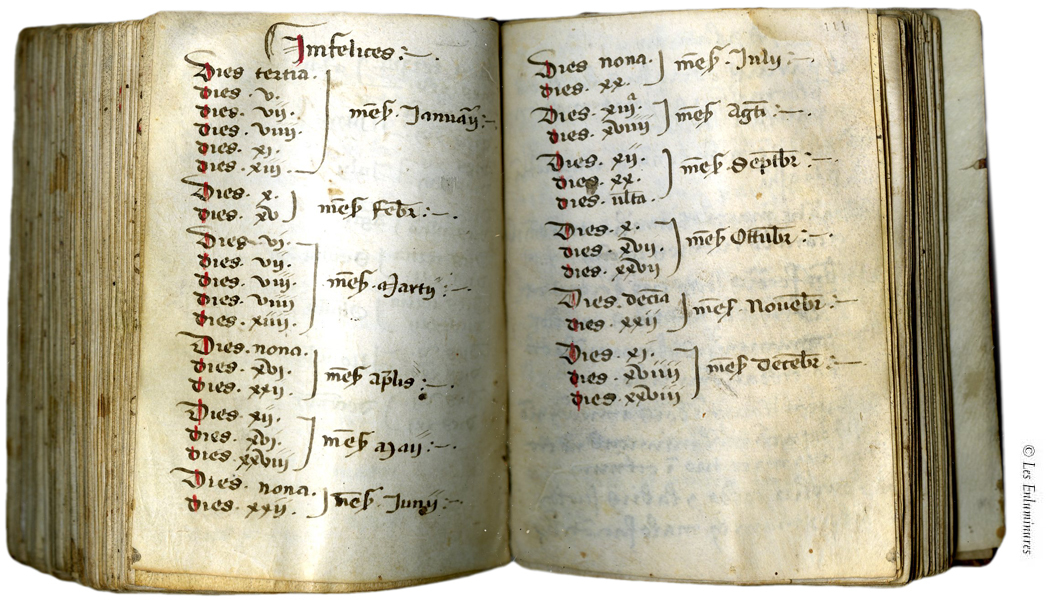 Infelices:
Dies tertia.
Dies. v.
dies. vii.
dies. viiii.
dies. xi.
dies. xiii.
mēs. Ianuarii:
Dies. x.
dies. xv
mēs. febr:
Dies. vi.
dies. vii.
dies. viii.
dies. viiii
dies. xiiii.
mēs. Martii
Dies. nona.
dies. xvi.
dies. xxii.
mēs. aplis:
Dies. xii.
dies. xvi.
dies. xxviii
mēs. Maii:
Dies. nona.
dies. xxii.
mēs. Iunii:
121
Dies nona.
dies. xx.
mēs. Iulii:
Dies. xiiiᵃ
dies. xviiii
mēs Agti:
Dies. xii.
dies. xx.
dies. ulta.
mēs. Septbr:
Dies. x.
dies. xvii.
dies. xxvii
mēs. Ottubr:
Dies. decia
dies. xxii
mēs. Novebr:
Dies. xi.
dies. xviiii
dies. xxviii
mēs. decebr:
© Les Enluminures